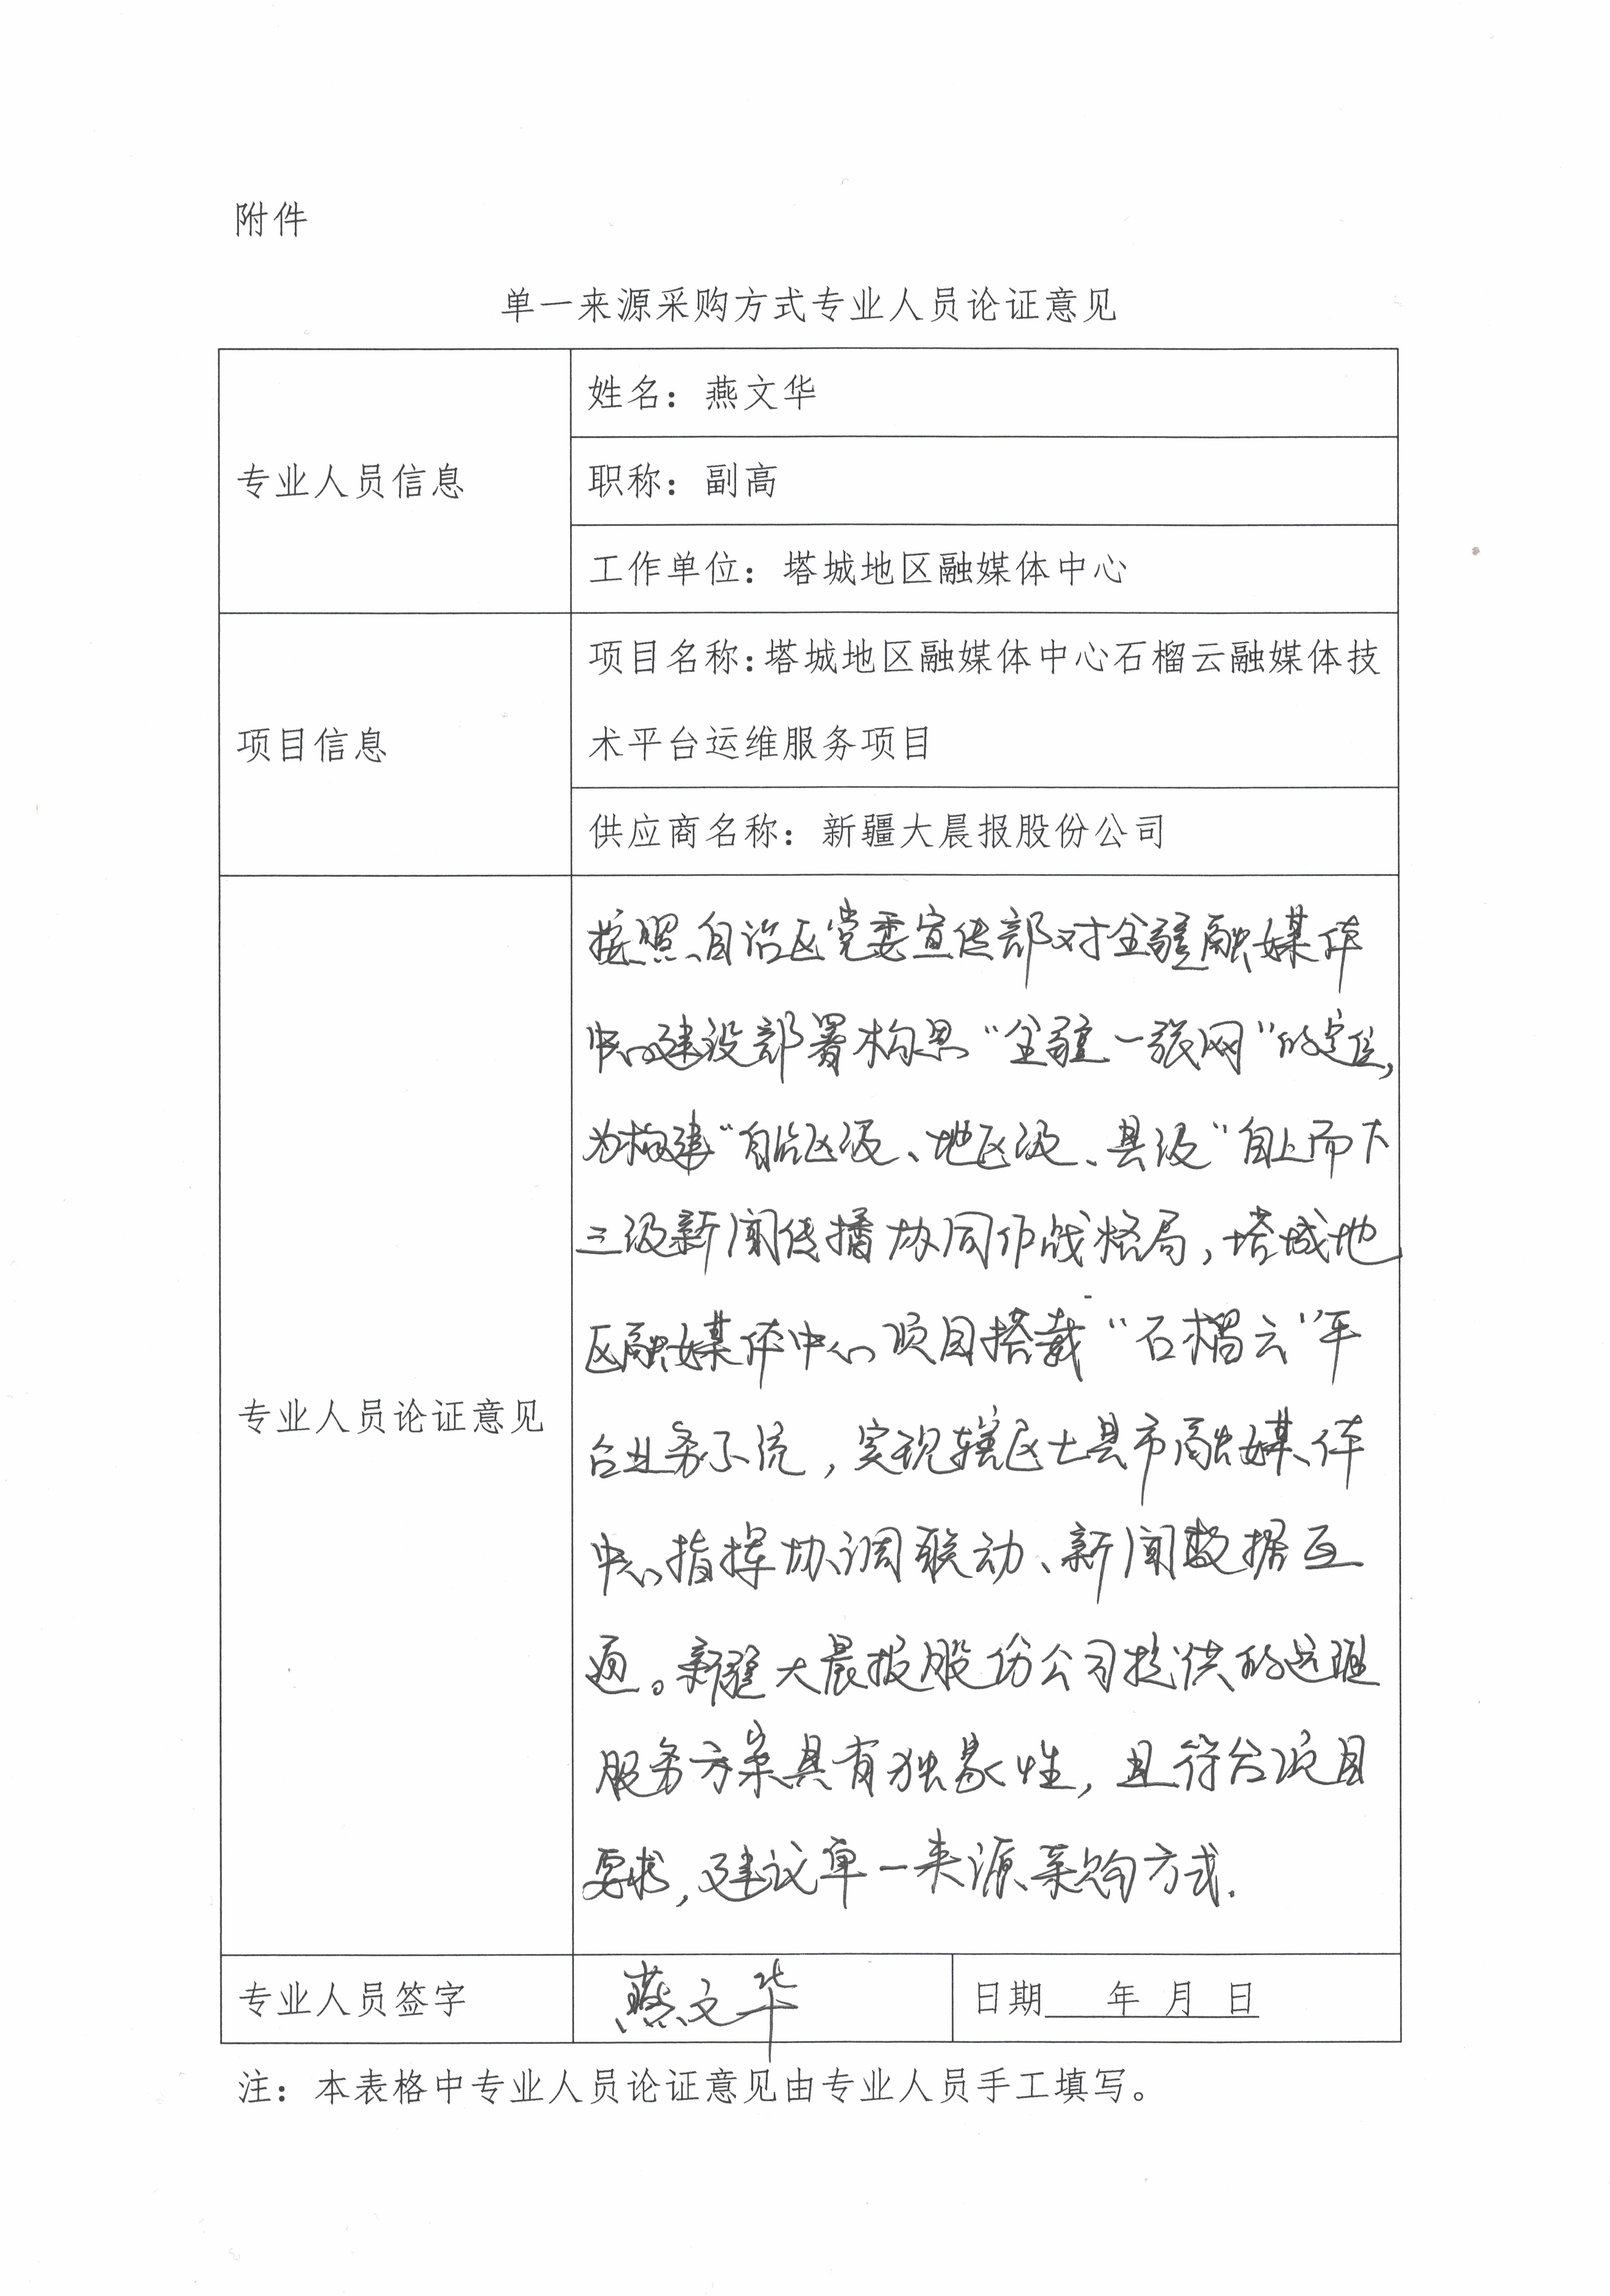 附件
单一来源采购方式专业人员论证意见
专业人员信息
姓名：燕文华
职称：副高
工作单位：塔城地区融媒体中心
项目信息
项目名称：塔城地区融媒体中心石榴云融媒体技
术平台运维服务项目
供应商名称：新疆大晨报股份公司
专业人员论证意见
按照自治区党委宣传部对全疆融媒体
中心建设部署构思“全疆一张网”的定位，
为构建“自治区级、地区级、县级”自上而下
三级新闻传播协同作战格局，塔城地
区融媒体中心项目搭载“石榴云”平
台业务系统，实现辖区七县市融媒体
中心指挥协调联动、新闻数据互
通。新疆大晨报股份公司提供的运维
服务方案具有独家性，且符合项目
要求，建议单一来源采购方式.
专业人员签字
燕文华
日期 年 月 日
注：本表格中专业人员论证意见由专业人员手工填写。